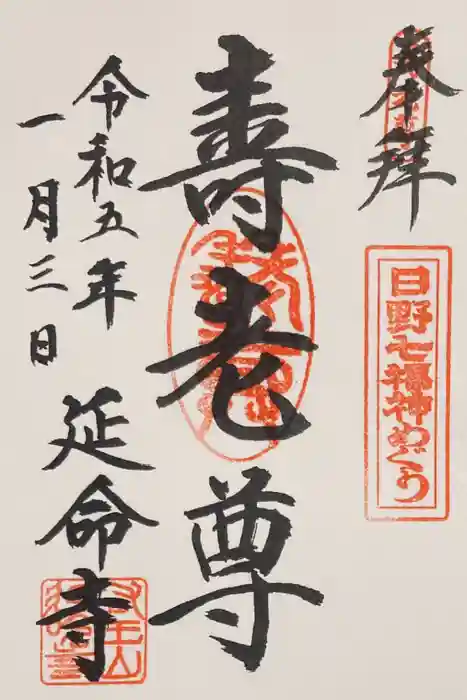 奉拝
日野七福神めぐり
壽老尊
令和五年
一月三日
延命寺